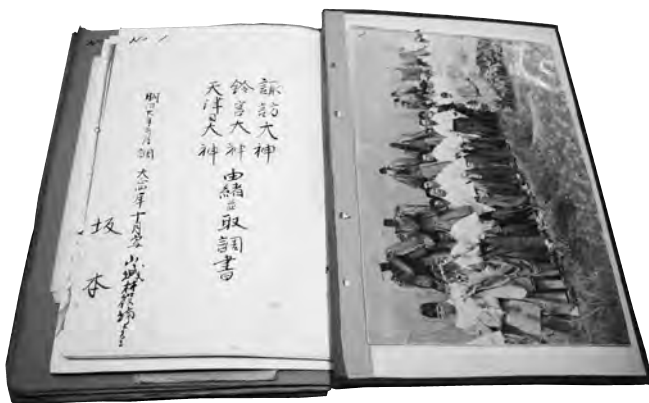 No 1
諏訪大神
鈴宮大神
天津日大神
由緒並取調書
大正四年十月写
山城村役場
坂本